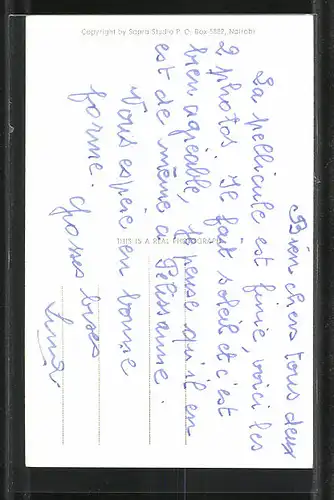 Copyright by Sapra Studio P. O. Box 5882, Nairobi
THIS IS A REAL PHOTOGRAPH
Bien chers tous deux
La pellicule est finie, voici les
2 photos. Il fait soleil et c'est
bien agréable, je pense qu'il en
est de même à Pélissanne.
Vous espère en bonne
forme. Grosses bises